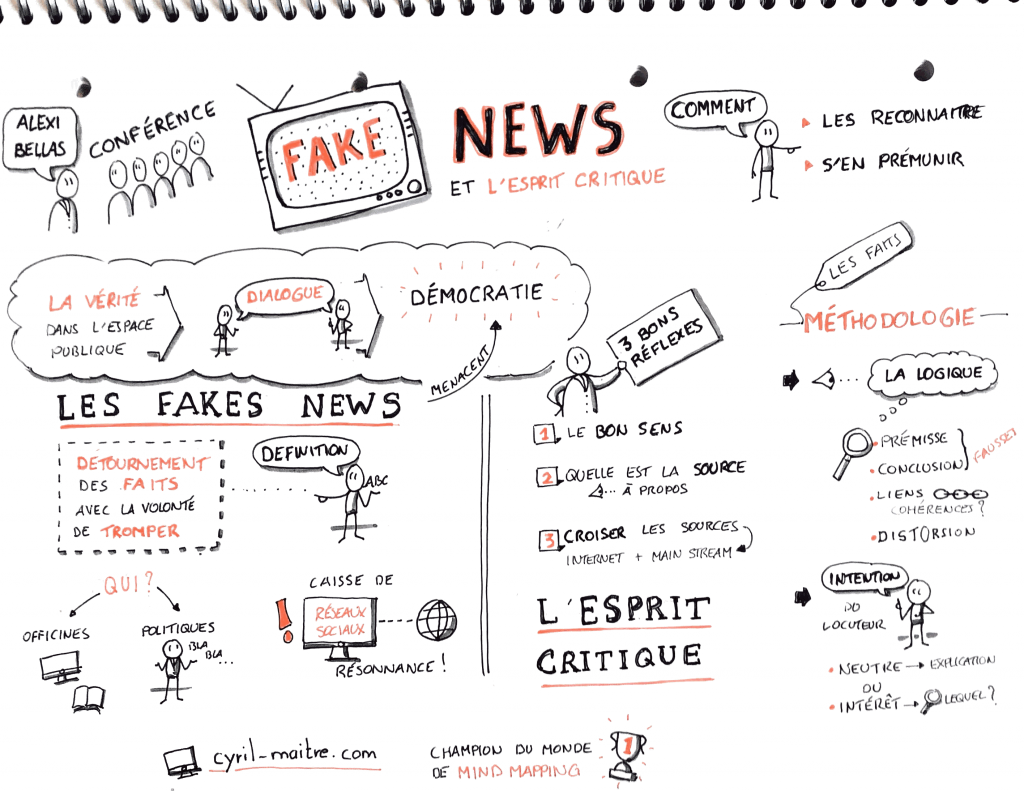 ALEXI
BELLAS
CONFÉRENCE
FAKE
NEWS
ET L'ESPRIT CRITIQUE
COMMENT
LES RECONNAITRE
S'EN PRÉMUNIR
LA VÉRITÉ
DANS L'ESPACE
PUBLIQUE
DIALOGUE
DÉMOCRATIE
MENACENT
LES FAKES NEWS
DÉTOURNEMENT
DES FAITS
AVEC LA VOLONTÉ
DE TROMPER
DEFINITION
ABC
QUI?
OFFICINES
POLITIQUES
BLA
BLA...
CAISSE DE
!
RÉSEAUX
SOCIAUX
RÉSONNANCE!
3 BONS
RÉFLEXES
1 LE BON SENS
2 QUELLE EST LA SOURCE
À PROPOS
3 CROISER LES SOURCES
INTERNET + MAIN STREAM
L'ESPRIT
CRITIQUE
LES FAITS
MÉTHODOLOGIE
LA LOGIQUE
• PRÉMISSE
• CONCLUSION
FAUSSE?
• LIENS
COHÉRENCES?
• DISTORSION
INTENTION
DU
LOCUTEUR
• NEUTRE → EXPLICATION
OU
• INTÉRÊT → LEQUEL?
cyril-maitre.com
CHAMPION DU MONDE
DE MIND MAPPING
1